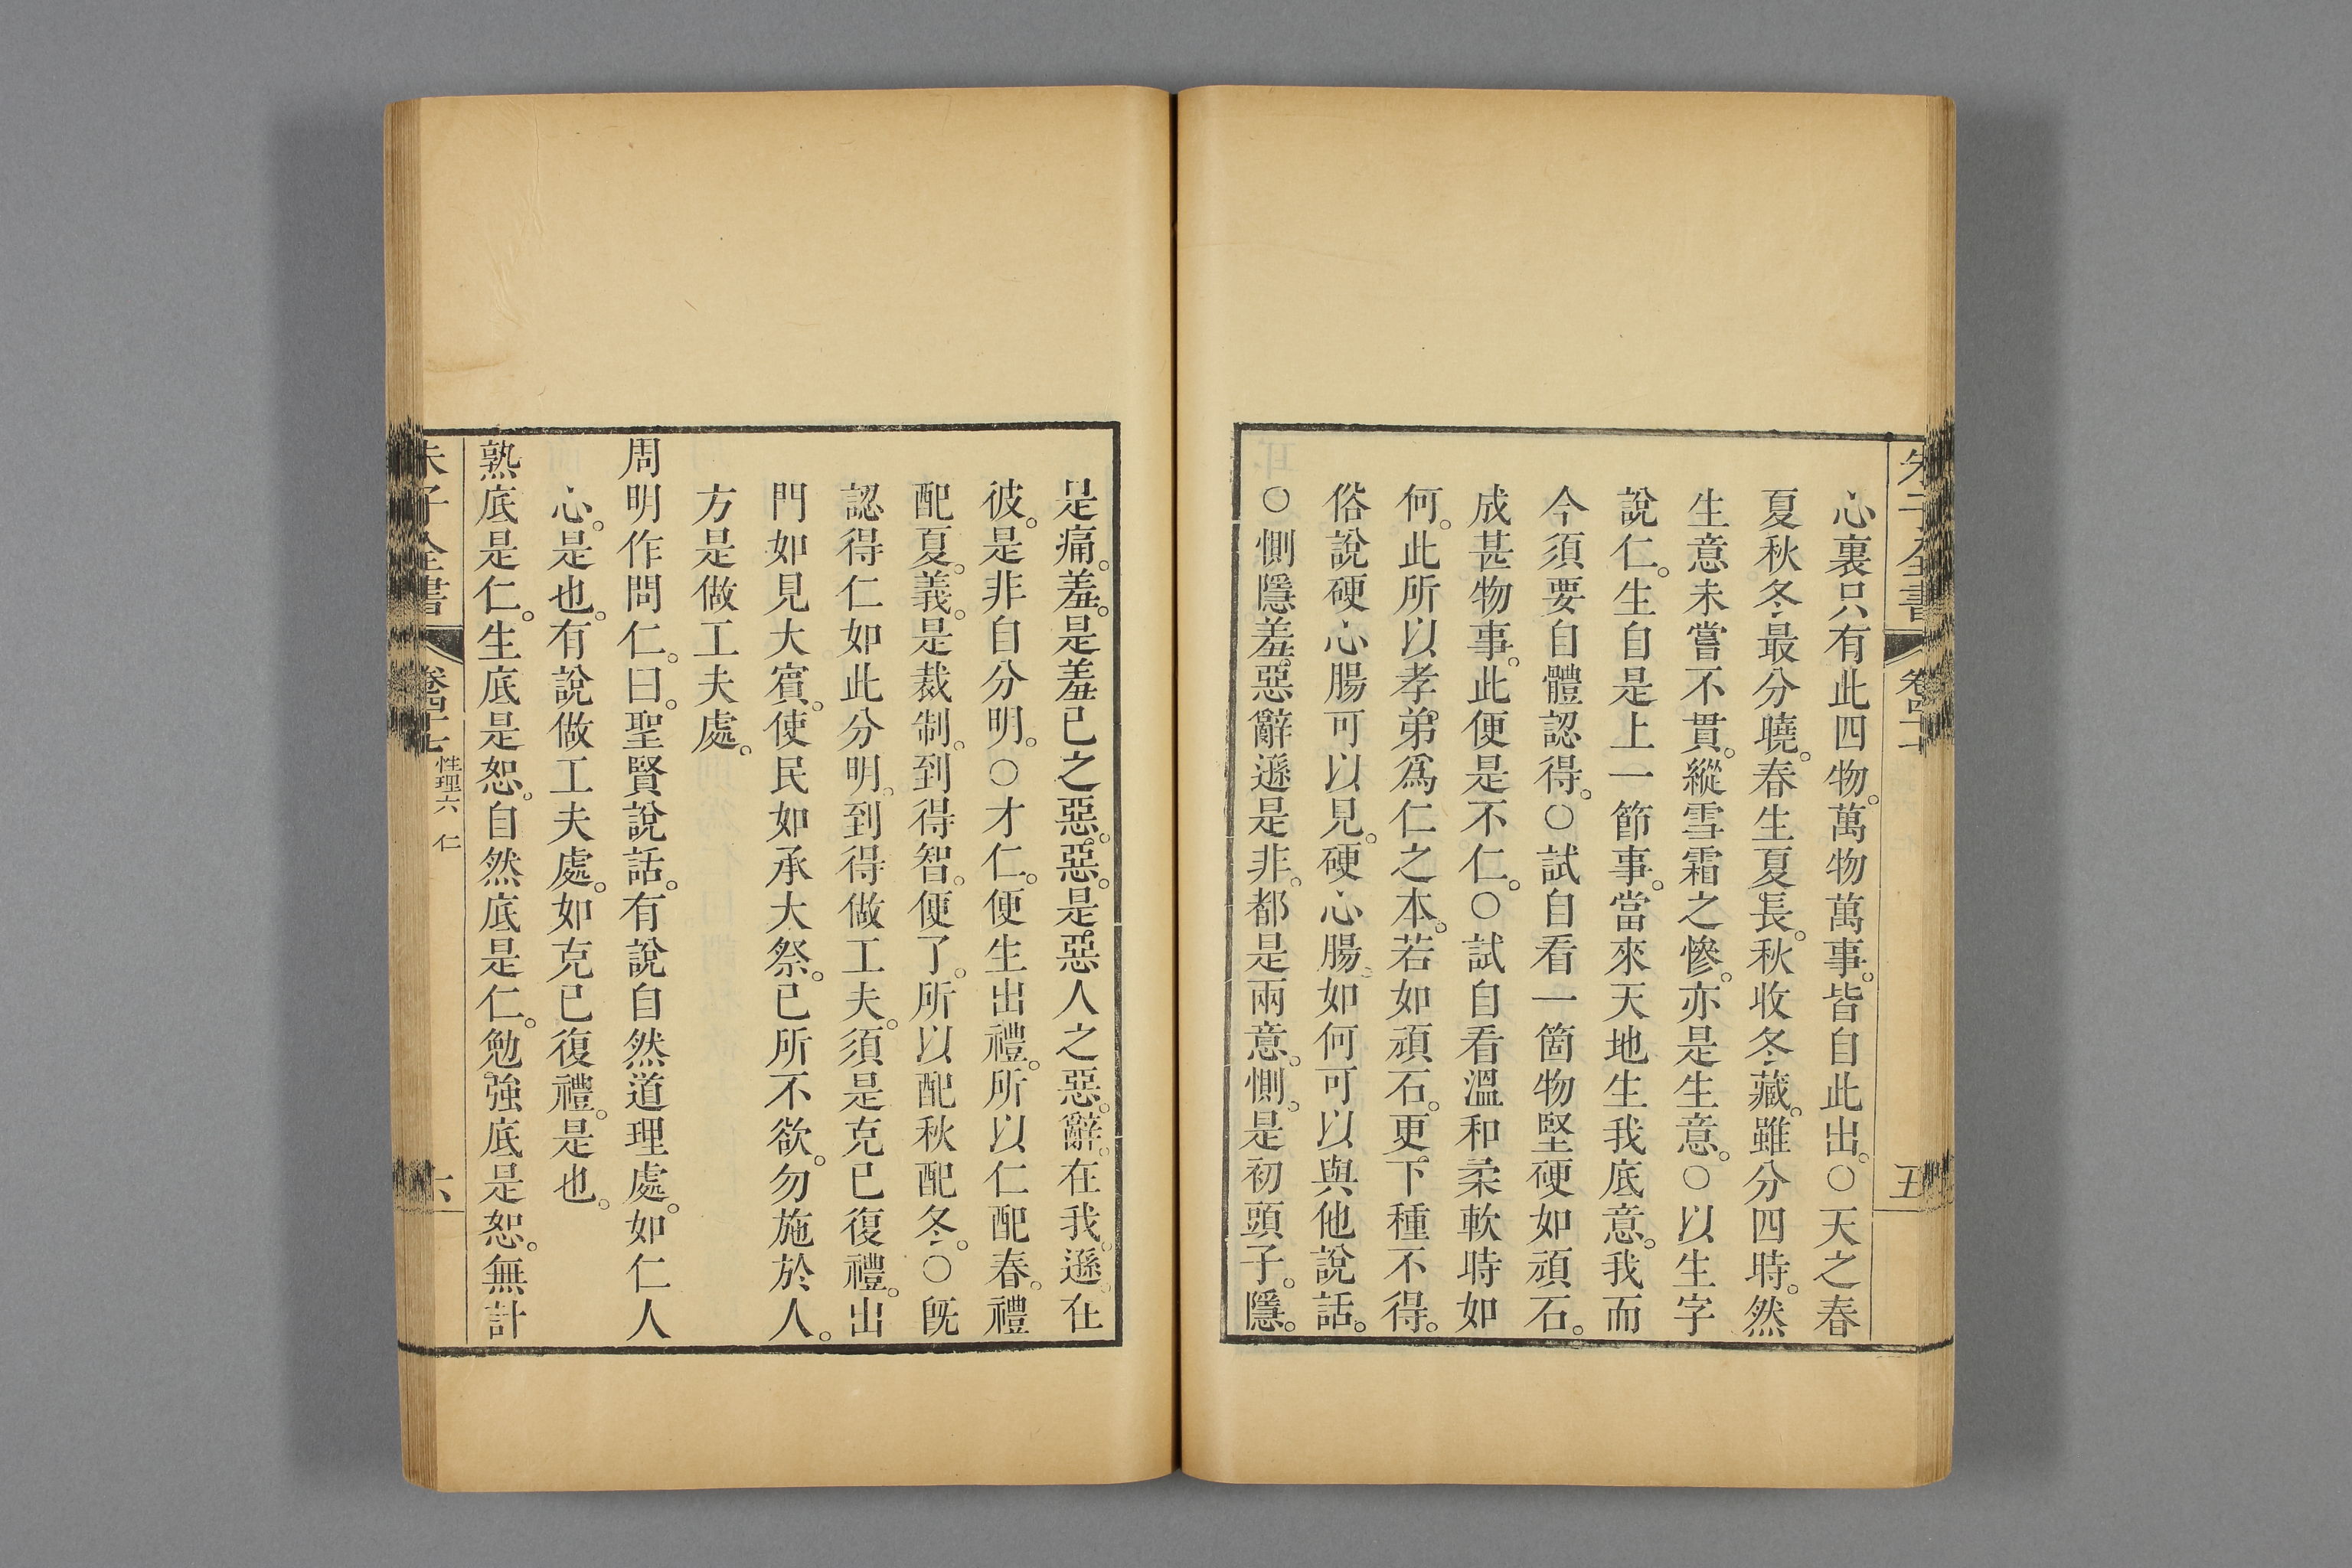 朱子全書 卷四十 五
心裏只有此四物。萬物萬事。皆自此出。○天之春
夏秋冬最分曉。春生夏長。秋收冬藏。雖分四時。然
生意未嘗不貫。縱雪霜之慘。亦是生意。○以生字
說仁。生自是上一節事。當來天地生我底意。我而
今須要自體認得。○試自看一箇物堅硬如頑石。
成甚物事。此便是不仁。○試自看溫和柔軟時如
何。此所以孝弟爲仁之本。若如頑石。更下種不得。
俗說硬心腸可以見。硬心腸。如何可以與他說話。
○惻隱羞惡辭遜是非。都是兩意。惻。是初頭子。隱。
是痛。羞。是羞己之惡。惡。是惡人之惡。辭。在我。遜。在
彼。是非自分明。○才仁。便生出禮。所以仁配春。禮
配夏。義。是裁制。到得智。便了。所以配秋配冬。○旣
認得仁如此分明。到得做工夫。須是克己復禮。出
門如見大賓。使民如承大祭。己所不欲。勿施於人。
方是做工夫處。
周明作問仁。曰。聖賢說話。有說自然道理處。如仁人
心。是也。有說做工夫處。如克己復禮。是也。
熟底是仁。生底是恕。自然底是仁。勉強底是恕。無計
朱子全書 卷四十七 性理六 仁 六